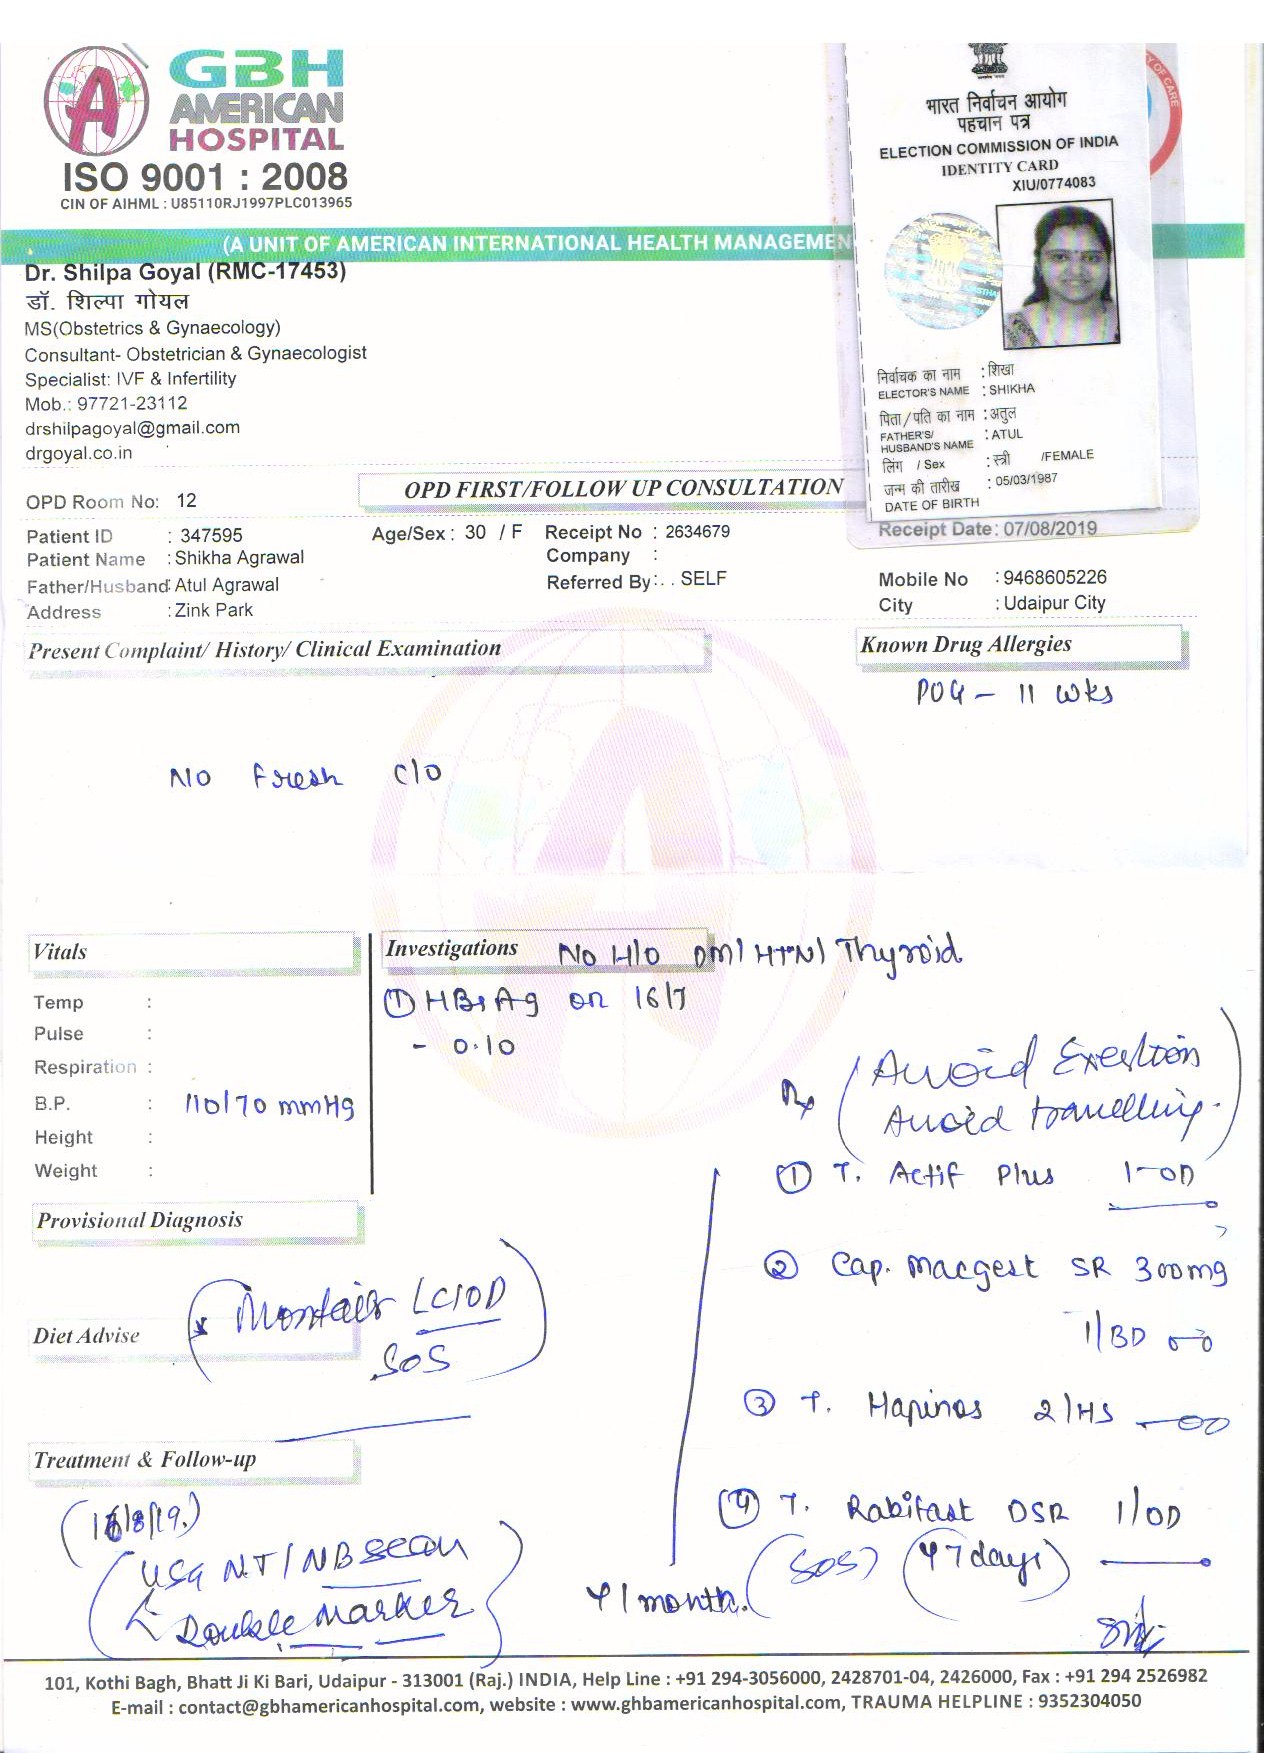 GBH
AMERICAN
HOSPITAL
ISO 9001 : 2008
CIN OF AIHML : U85110RJ1997PLC013965
(A UNIT OF AMERICAN INTERNATIONAL HEALTH MANAGEMEN
Y OF CARE
भारत निर्वाचन आयोग
पहचान पत्र
ELECTION COMMISSION OF INDIA
IDENTITY CARD
XIU/0774083
निर्वाचक का नाम : शिखा
ELECTOR'S NAME : SHIKHA
पिता/पति का नाम : अतुल
FATHER'S/
HUSBAND'S NAME : ATUL
लिंग / Sex : स्त्री /FEMALE
जन्म की तारीख : 05/03/1987
DATE OF BIRTH
Dr. Shilpa Goyal (RMC-17453)
डॉ. शिल्पा गोयल
MS(Obstetrics & Gynaecology)
Consultant- Obstetrician & Gynaecologist
Specialist: IVF & Infertility
Mob.: 97721-23112
drshilpagoyal@gmail.com
drgoyal.co.in
OPD Room No: 12
OPD FIRST/FOLLOW UP CONSULTATION
Patient ID : 347595 Age/Sex : 30 / F Receipt No : 2634679 Receipt Date: 07/08/2019
Patient Name : Shikha Agrawal Company :
Father/Husband: Atul Agrawal Referred By: . . SELF Mobile No : 9468605226
Address : Zink Park City : Udaipur City
Present Complaint/ History/ Clinical Examination Known Drug Allergies
POG - 11 wks
No Fresh C/O
Vitals
Temp :
Pulse :
Respiration :
B.P. : 110/70 mmHg
Height :
Weight :
Investigations No H/O DM/ HTN/ Thyroid
① HBsAg on 16/7
- 0.10
Rx (Avoid Exertion
Avoid travelling.)
① T. Actif Plus 1-OD
② Cap. Macgest SR 300mg
1/BD
③ T. Hapinos 2/HS
④ T. Rabifast DSR 1/OD
(SOS) (x 7 days)
x 1 month.
Provisional Diagnosis
Diet Advise
Montair LC 1OD
SOS
Treatment & Follow-up
USG NT/NB scan
Double Marker
101, Kothi Bagh, Bhatt Ji Ki Bari, Udaipur - 313001 (Raj.) INDIA, Help Line : +91 294-3056000, 2428701-04, 2426000, Fax : +91 294 2526982
E-mail : contact@gbhamericanhospital.com, website : www.ghbamericanhospital.com, TRAUMA HELPLINE : 9352304050